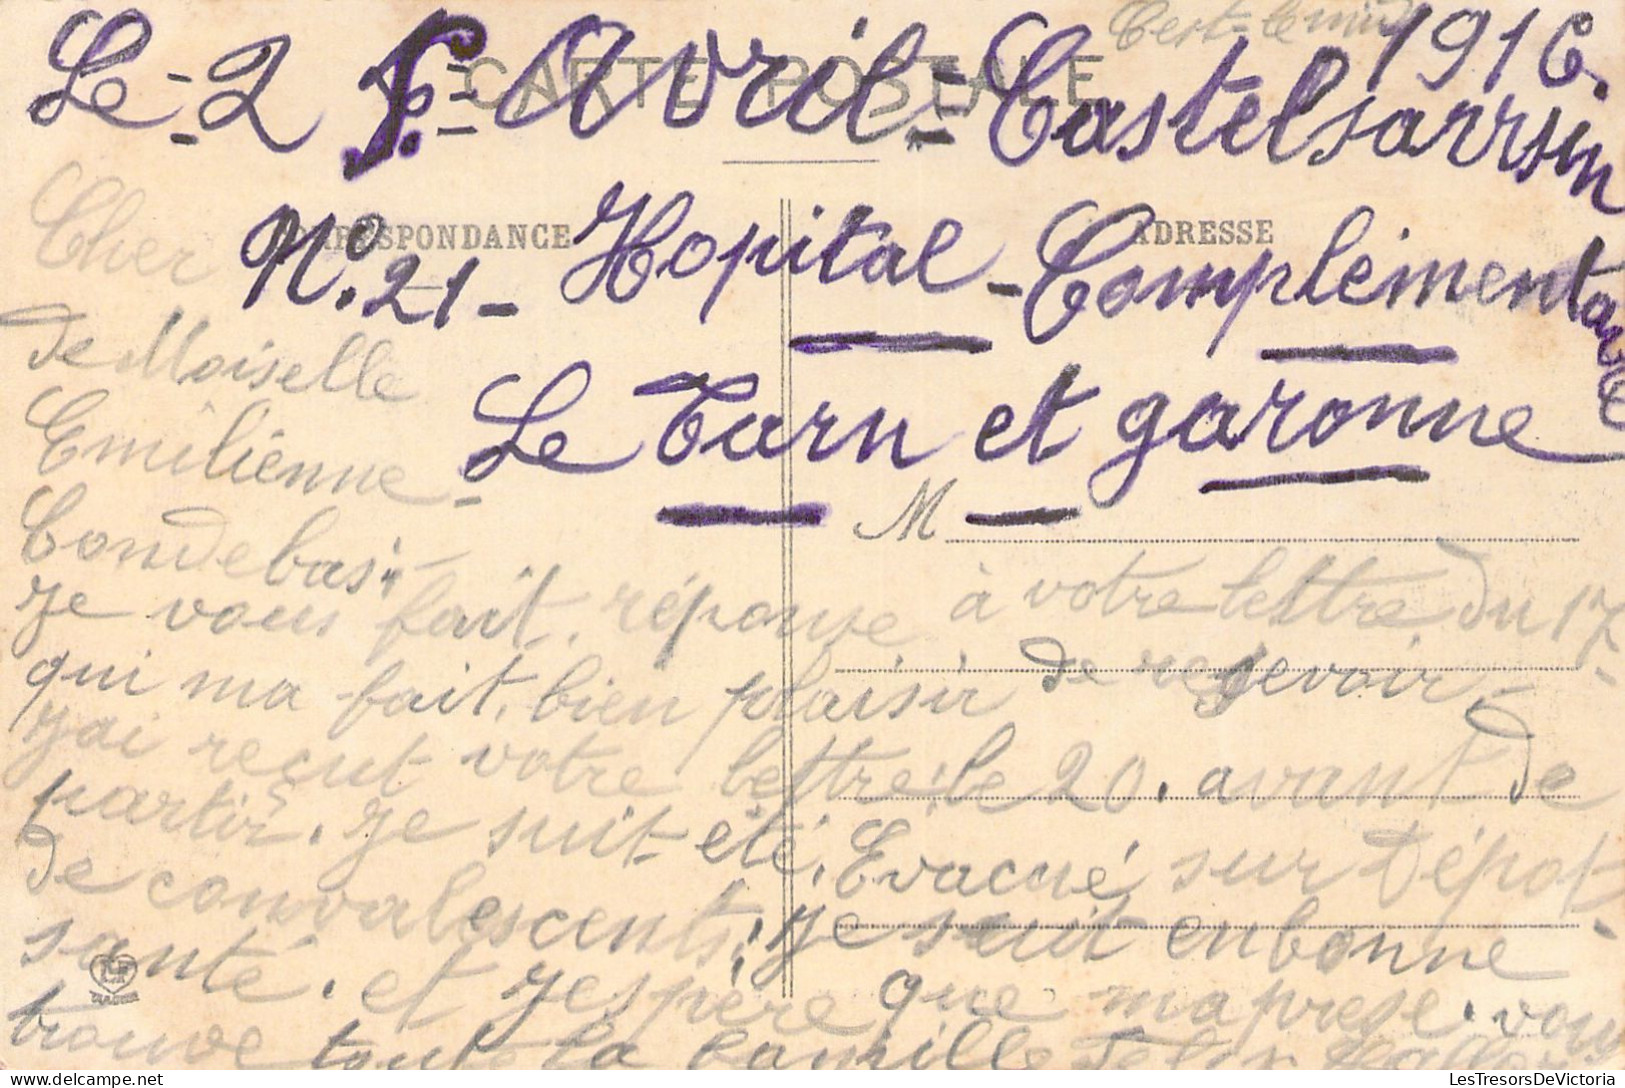 Le - 2 Avril - Castelsarrsin
1916.
CARTE POSTALE
CORRESPONDANCE
ADRESSE
No. 21 - Hopital - Complémentaire
Le Tarn et garonne
M
Cher
deMoiselle
Emilienne -
Condebas :
je vous fait. réponse à votre lettre du 17 -
qui ma fait. bien plaisir de resevoir,
jai reçut votre lettre. le 20. avant de
partir. je suit été. Evacué sur Dépot -
de convalescents. je suit enbonne
santé. et jespère que maprese. vous
trouve toute la famille
LesTresorsDeVictoria